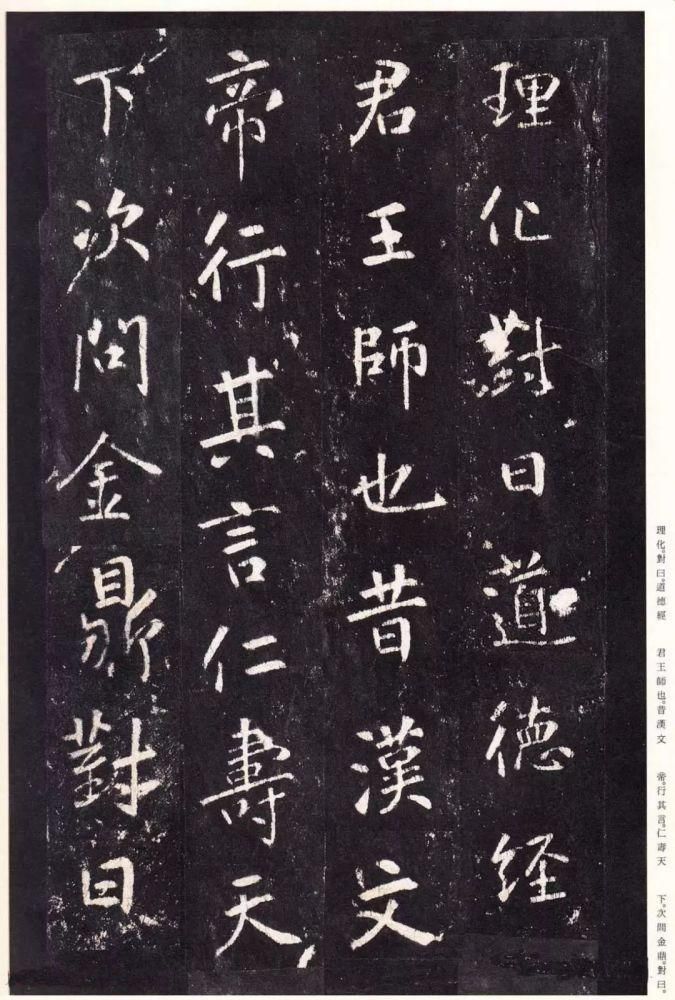 理化對曰道德經
君王師也昔漢文
帝行其言仁壽天
下次問金鼎對曰
理化。對曰。道德經 君王師也。昔漢文 帝。行其言。仁壽天 下。次問金鼎。對曰。